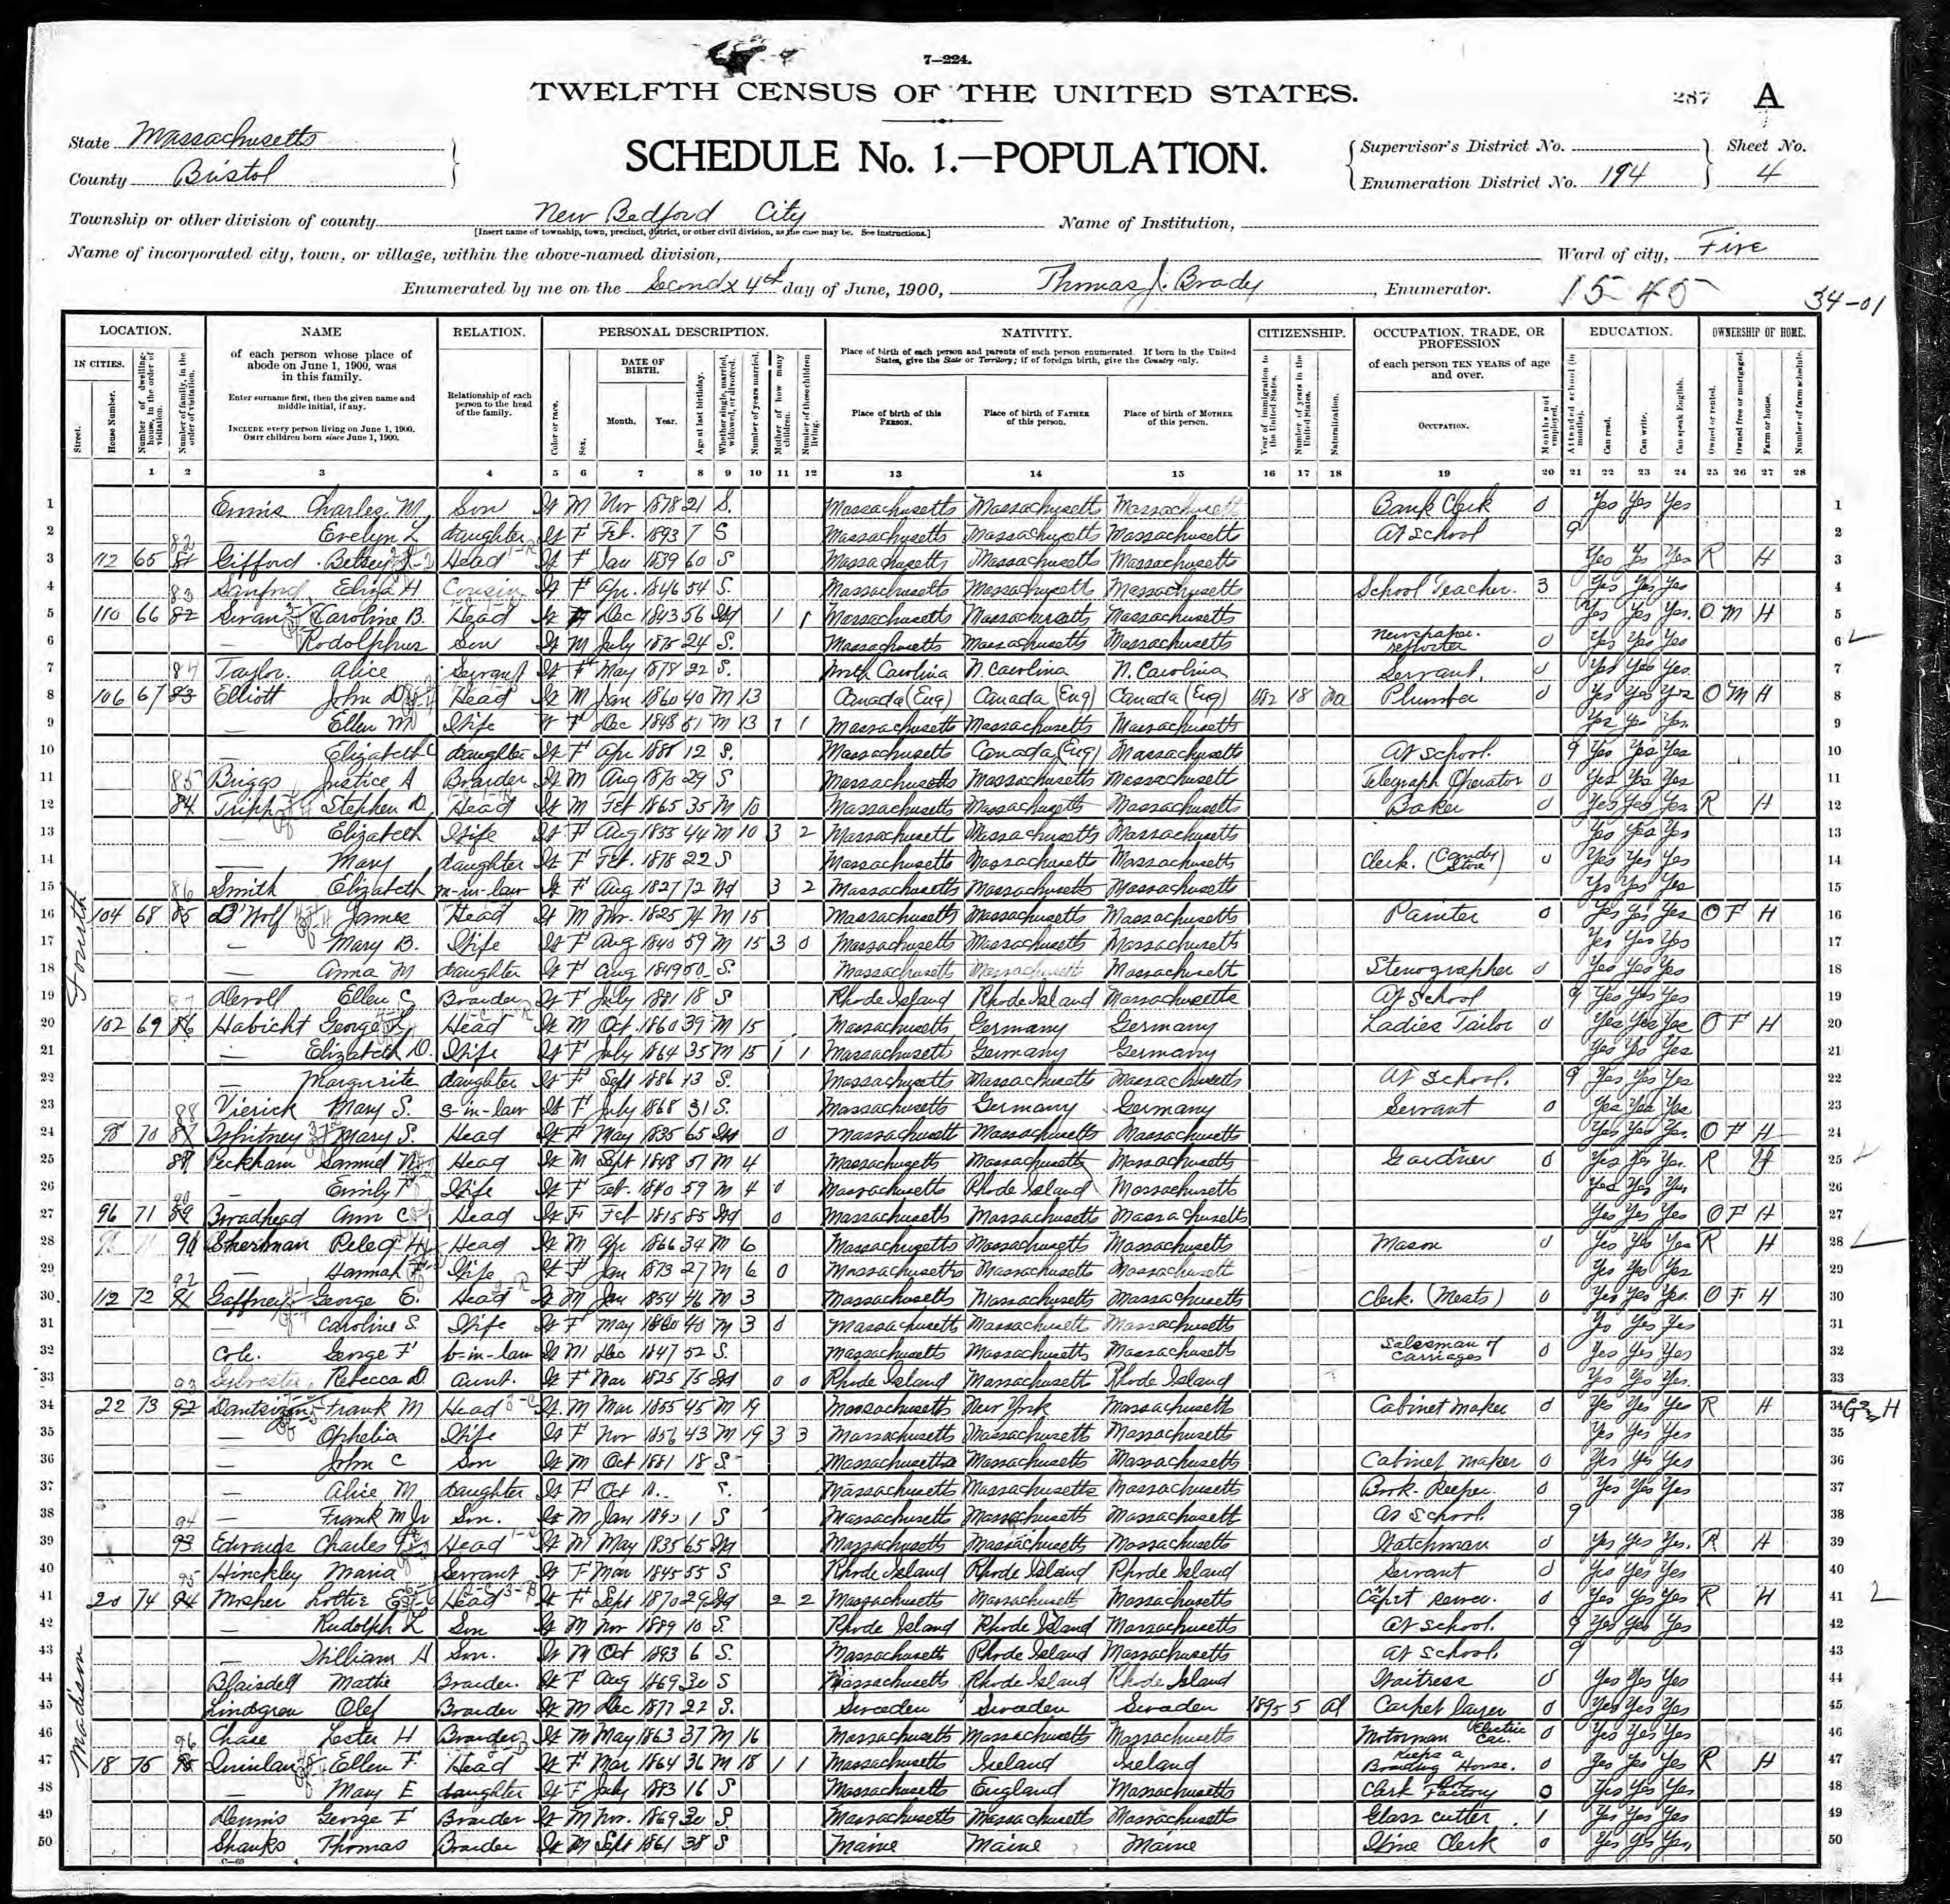 7—224.
TWELFTH CENSUS OF THE UNITED STATES.
287 A
State Massachusetts
County Bristol
SCHEDULE No. 1.—POPULATION.
Supervisor's District No.
Enumeration District No. 194
Sheet No.
4
Township or other division of county New Bedford City
[Insert name of township, town, precinct, district, or other civil division, as the case may be. See instructions.]
Name of Institution,
Name of incorporated city, town, or village, within the above-named division,
Ward of city, Five
Enumerated by me on the Second x 4th day of June, 1900, Thomas J. Brady, Enumerator.
15 45
34-01
LOCATION. NAME RELATION. PERSONAL DESCRIPTION. NATIVITY. CITIZENSHIP. OCCUPATION, TRADE, OR PROFESSION EDUCATION. OWNERSHIP OF HOME.
IN CITIES.
Street.
House Number.
Number of dwelling-house, in the order of visitation.
Number of family, in the order of visitation.
of each person whose place of abode on June 1, 1900, was in this family.
Enter surname first, then the given name and middle initial, if any.
INCLUDE every person living on June 1, 1900.
OMIT children born since June 1, 1900.
Relationship of each person to the head of the family.
Color or race.
Sex.
DATE OF BIRTH.
Month. Year.
Age at last birthday.
Whether single, married, widowed, or divorced.
Number of years married.
Mother of how many children.
Number of these children living.
Place of birth of each person and parents of each person enumerated. If born in the United States, give the State or Territory; if of foreign birth, give the Country only.
Place of birth of this PERSON.
Place of birth of FATHER of this person.
Place of birth of MOTHER of this person.
Year of immigration to the United States.
Number of years in the United States.
Naturalization.
of each person TEN YEARS of age and over.
OCCUPATION.
Months not employed.
Attended school (in months).
Can read.
Can write.
Can speak English.
Owned or rented.
Owned free or mortgaged.
Farm or house.
Number of farm schedule.
1 2 3 4 5 6 7 8 9 10 11 12 13 14 15 16 17 18 19 20 21 22 23 24 25 26 27 28
Fourth
1 Ennis Charles M. Son W M Nov 1878 21 S. Massachusetts Massachusetts Massachusetts Bank Clerk 0 Yes Yes Yes 1
2 — Evelyn L daughter W F Feb. 1893 7 S Massachusetts Massachusetts Massachusetts At School 9 2
3 112 65 Gifford Betsey Head W F Jan 1839 60 S Massachusetts Massachusetts Massachusetts Yes Yes Yes R H 3
4 83 Sanford, Eliza H Cousin W F Apr. 1846 54 S. Massachusetts Massachusetts Massachusetts School Teacher. 3 Yes Yes Yes 4
5 110 66 82 Swan Caroline B. Head W F Dec 1843 56 Wd 1 1 Massachusetts Massachusetts Massachusetts Yes Yes Yes. O M H 5
6 — Rodolphus Son W M July 1875 24 S. Massachusetts Massachusetts Massachusetts Newspaper reporter 0 Yes Yes Yes 6
7 84 Taylor Alice Servant W F May 1878 22 S. North Carolina N. Carolina N. Carolina Servant. 0 Yes Yes Yes. 7
8 106 67 83 Elliott John D Head W M Jan 1860 40 M 13 Canada (Eng) Canada (Eng) Canada (Eng) 1882 18 Na Plumber 0 Yes Yes Yes O M H 8
9 — Ellen M Wife W F Dec 1848 51 M 13 1 1 Massachusetts Massachusetts Massachusetts Yes Yes Yes. 9
10 — Elizabeth C daughter W F Apr 1888 12 S. Massachusetts Canada (Eng) Massachusetts At School. 9 Yes Yes Yes 10
11 85 Briggs Justice A Boarder W M Aug 1870 29 S Massachusetts Massachusetts Massachusetts Telegraph Operator 0 Yes Yes Yes 11
12 84 Tripp Stephen D. Head W M Feb 1865 35 M 10 Massachusetts Massachusetts Massachusetts Baker 0 Yes Yes Yes R H 12
13 — Elizabeth Wife W F Aug 1855 44 M 10 3 2 Massachusetts Massachusetts Massachusetts Yes Yes Yes 13
14 — Mary daughter W F Feb. 1878 22 S Massachusetts Massachusetts Massachusetts Clerk. (Candy Store) 0 Yes Yes Yes 14
15 86 Smith Elizabeth m-in-law W F Aug 1827 72 Wd 3 2 Massachusetts Massachusetts Massachusetts Yes Yes Yes 15
16 104 68 85 D'Wolf James Head W M Nov. 1825 74 M 15 Massachusetts Massachusetts Massachusetts Painter 0 Yes Yes Yes O F H 16
17 — Mary B. Wife W F Aug 1840 59 M 15 3 0 Massachusetts Massachusetts Massachusetts Yes Yes Yes 17
18 — Anna M daughter W F Aug 1849 50 S. Massachusetts Massachusetts Massachusetts Stenographer 0 Yes Yes Yes 18
19 87 Ellen C Boarder W F July 1881 18 S Rhode Island Rhode Island Massachusetts At School 9 Yes Yes Yes 19
20 102 69 86 Habicht George L Head W M Oct. 1860 39 M 15 Massachusetts Germany Germany Ladies Tailor 0 Yes Yes Yes O F H 20
21 — Elizabeth D. Wife W F July 1864 35 M 15 1 1 Massachusetts Germany Germany Yes Yes Yes 21
22 — Margurite daughter W F Sept 1886 13 S. Massachusetts Massachusetts Massachusetts At School. 9 Yes Yes Yes 22
23 88 Vierick Mary S. s-in-law W F July 1868 31 S. Massachusetts Germany Germany Servant 0 Yes Yes Yes 23
24 98 70 87 Whitney Mary S. Head W F May 1835 65 Wd 0 Massachusetts Massachusetts Massachusetts Yes Yes Yes. O F H 24
25 Peckham Samuel N Head W M Sept 1848 51 M 4 Massachusetts Massachusetts Massachusetts Gardner 0 Yes Yes Yes. R H 25
26 — Emily F Wife W F Feb. 1840 59 M 4 0 Massachusetts Rhode Island Massachusetts Yes Yes Yes 26
27 96 71 89 Broadhead Ann C Head W F Feb 1815 85 Wd 0 Massachusetts Massachusetts Massachusetts Yes Yes Yes O F H 27
28 Sherman Peleg H Head W M Apr 1866 34 M 6 Massachusetts Massachusetts Massachusetts Mason 0 Yes Yes Yes R H 28
29 — Hannah F Wife W F Jan 1873 27 M 6 0 Massachusetts Massachusetts Massachusetts Yes Yes Yes 29
30 112 72 91 Gaffney George E. Head W M Jan 1854 46 M 3 Massachusetts Massachusetts Massachusetts Clerk. (Meats) 0 Yes Yes Yes. O F H 30
31 — Caroline S. Wife W F May 1860 40 M 3 0 Massachusetts Massachusetts Massachusetts Yes Yes Yes 31
32 Cole. George F b-in-law W M Dec 1847 52 S. Massachusetts Massachusetts Massachusetts Salesman of Carriages 0 Yes Yes Yes 32
33 93 Sylvester, Rebecca D. Aunt. W F Mar 1825 75 Wd 0 0 Rhode Island Massachusetts Rhode Island Yes Yes Yes. 33
34 22 73 92 Frank M Head W M Mar 1855 45 M 19 Massachusetts New York Massachusetts Cabinet Maker 0 Yes Yes Yes R H 34
35 — Ophelia Wife W F Nov 1856 43 M 19 3 3 Massachusetts Massachusetts Massachusetts Yes Yes Yes 35
36 — John C Son W M Oct 1881 18 S Massachusetts Massachusetts Massachusetts Cabinet Maker 0 Yes Yes Yes 36
37 — Alice M daughter W F Oct S. Massachusetts Massachusetts Massachusetts Book-Keeper. 0 Yes Yes Yes 37
38 94 — Frank M Jr Son. W M Jan S Massachusetts Massachusetts Massachusetts At School 9 38
39 93 Edwards Charles Head W M May 1835 65 Massachusetts Massachusetts Massachusetts Watchman 0 Yes Yes Yes. R H 39
40 95 Hinckley Maria Servant W F Mar 1845 55 S Rhode Island Rhode Island Rhode Island Servant 0 Yes Yes Yes 40
Madison
41 20 74 94 Mosher Lottie Head W F Sept 1870 29 Wd 2 2 Massachusetts Massachusetts Massachusetts Carpet Sewer. 0 Yes Yes Yes R H 41
42 — Rudolph L Son W M Nov 1889 10 S. Rhode Island Rhode Island Massachusetts At School. 9 Yes Yes Yes 42
43 — William H Son. W M Oct 1893 6 S. Massachusetts Rhode Island Massachusetts At School. 9 43
44 Blaisdell Mattie Boarder. W F Aug 1869 30 S Massachusetts Rhode Island Rhode Island Waitress 0 Yes Yes Yes 44
45 Lindgren Olef Boarder W M Dec 1877 22 S. Sweden Sweden Sweden 1895 5 Al Carpet layer 0 Yes Yes Yes 45
46 96 Chase Lester H Boarder W M May 1863 37 M 16 Massachusetts Massachusetts Massachusetts Motorman Electric Car. 0 Yes Yes Yes 46
47 18 75 95 Quinlan Ellen F. Head W F Mar 1864 36 M 18 1 1 Massachusetts Ireland Ireland Keeps a Boarding House. 0 Yes Yes Yes R H 47
48 — Mary E daughter W F July 1883 16 S Massachusetts England Massachusetts Clerk Factory 0 Yes Yes Yes 48
49 Dennis George F Boarder W M Nov. 1869 30 S. Massachusetts Massachusetts Massachusetts Glass cutter 1 Yes Yes Yes 49
50 Shanks Thomas Boarder W M Sept 1861 38 S Maine Maine Maine Wine Clerk 0 Yes Yes Yes 50